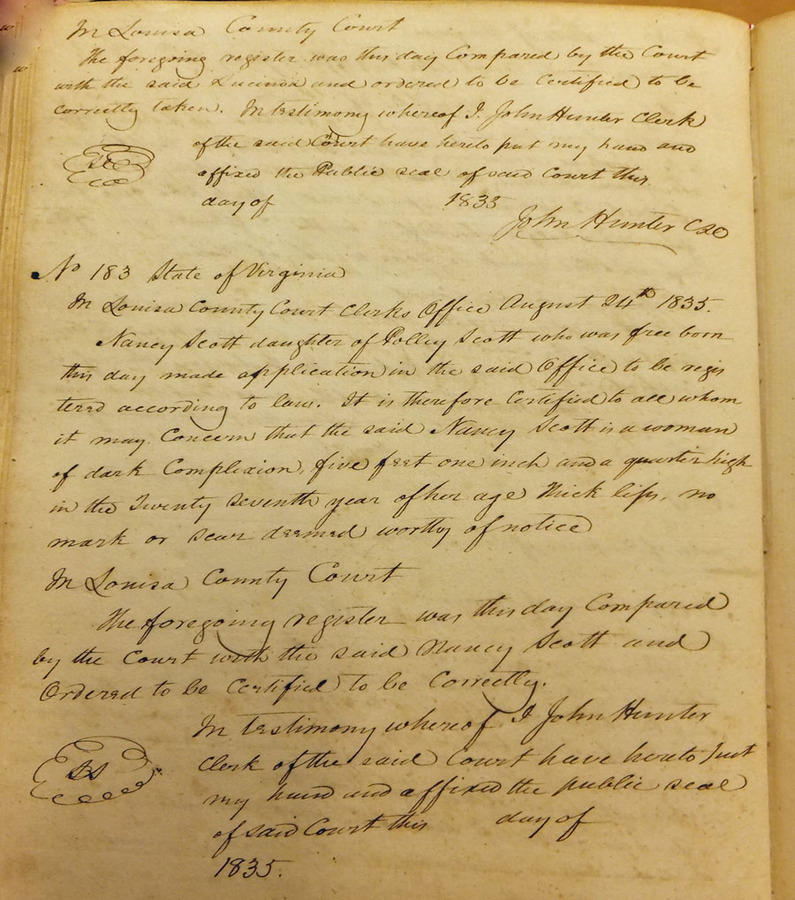 In Louisa County Court
The foregoing register was this day Compared by the Court
with the said Lucinda and ordered to be Certified to be
correctly taken. In testimony whereof I. John Hunter Clerk
of the said Court have hereto put my hand and
affixed the Public seal of said Court this
day of 1835
John Hunter
No 183 State of Virginia
In Louisa County Court Clerks Office August 24th 1835.
Nancy Scott daughter of Polley Scott who was free born
this day made application in the said Office to be regis
tered according to law. It is therefore Certified to all whom
it may Concern that the said Nancy Scott is a woman
of dark Complexion, five feet one inch and a quarter high
in the Twenty Seventh year of her age Thick lips, no
mark or scar deemed worthy of notice
In Louisa County Court
The foregoing register was this day Compared
by the Court with the said Nancy Scott and
Ordered to be Certified to be Correctly.
In testimony whereof I John Hunter
Clerk of the said Court have hereto put
my hand and affixed the public seal
of said Court this day of
1835.